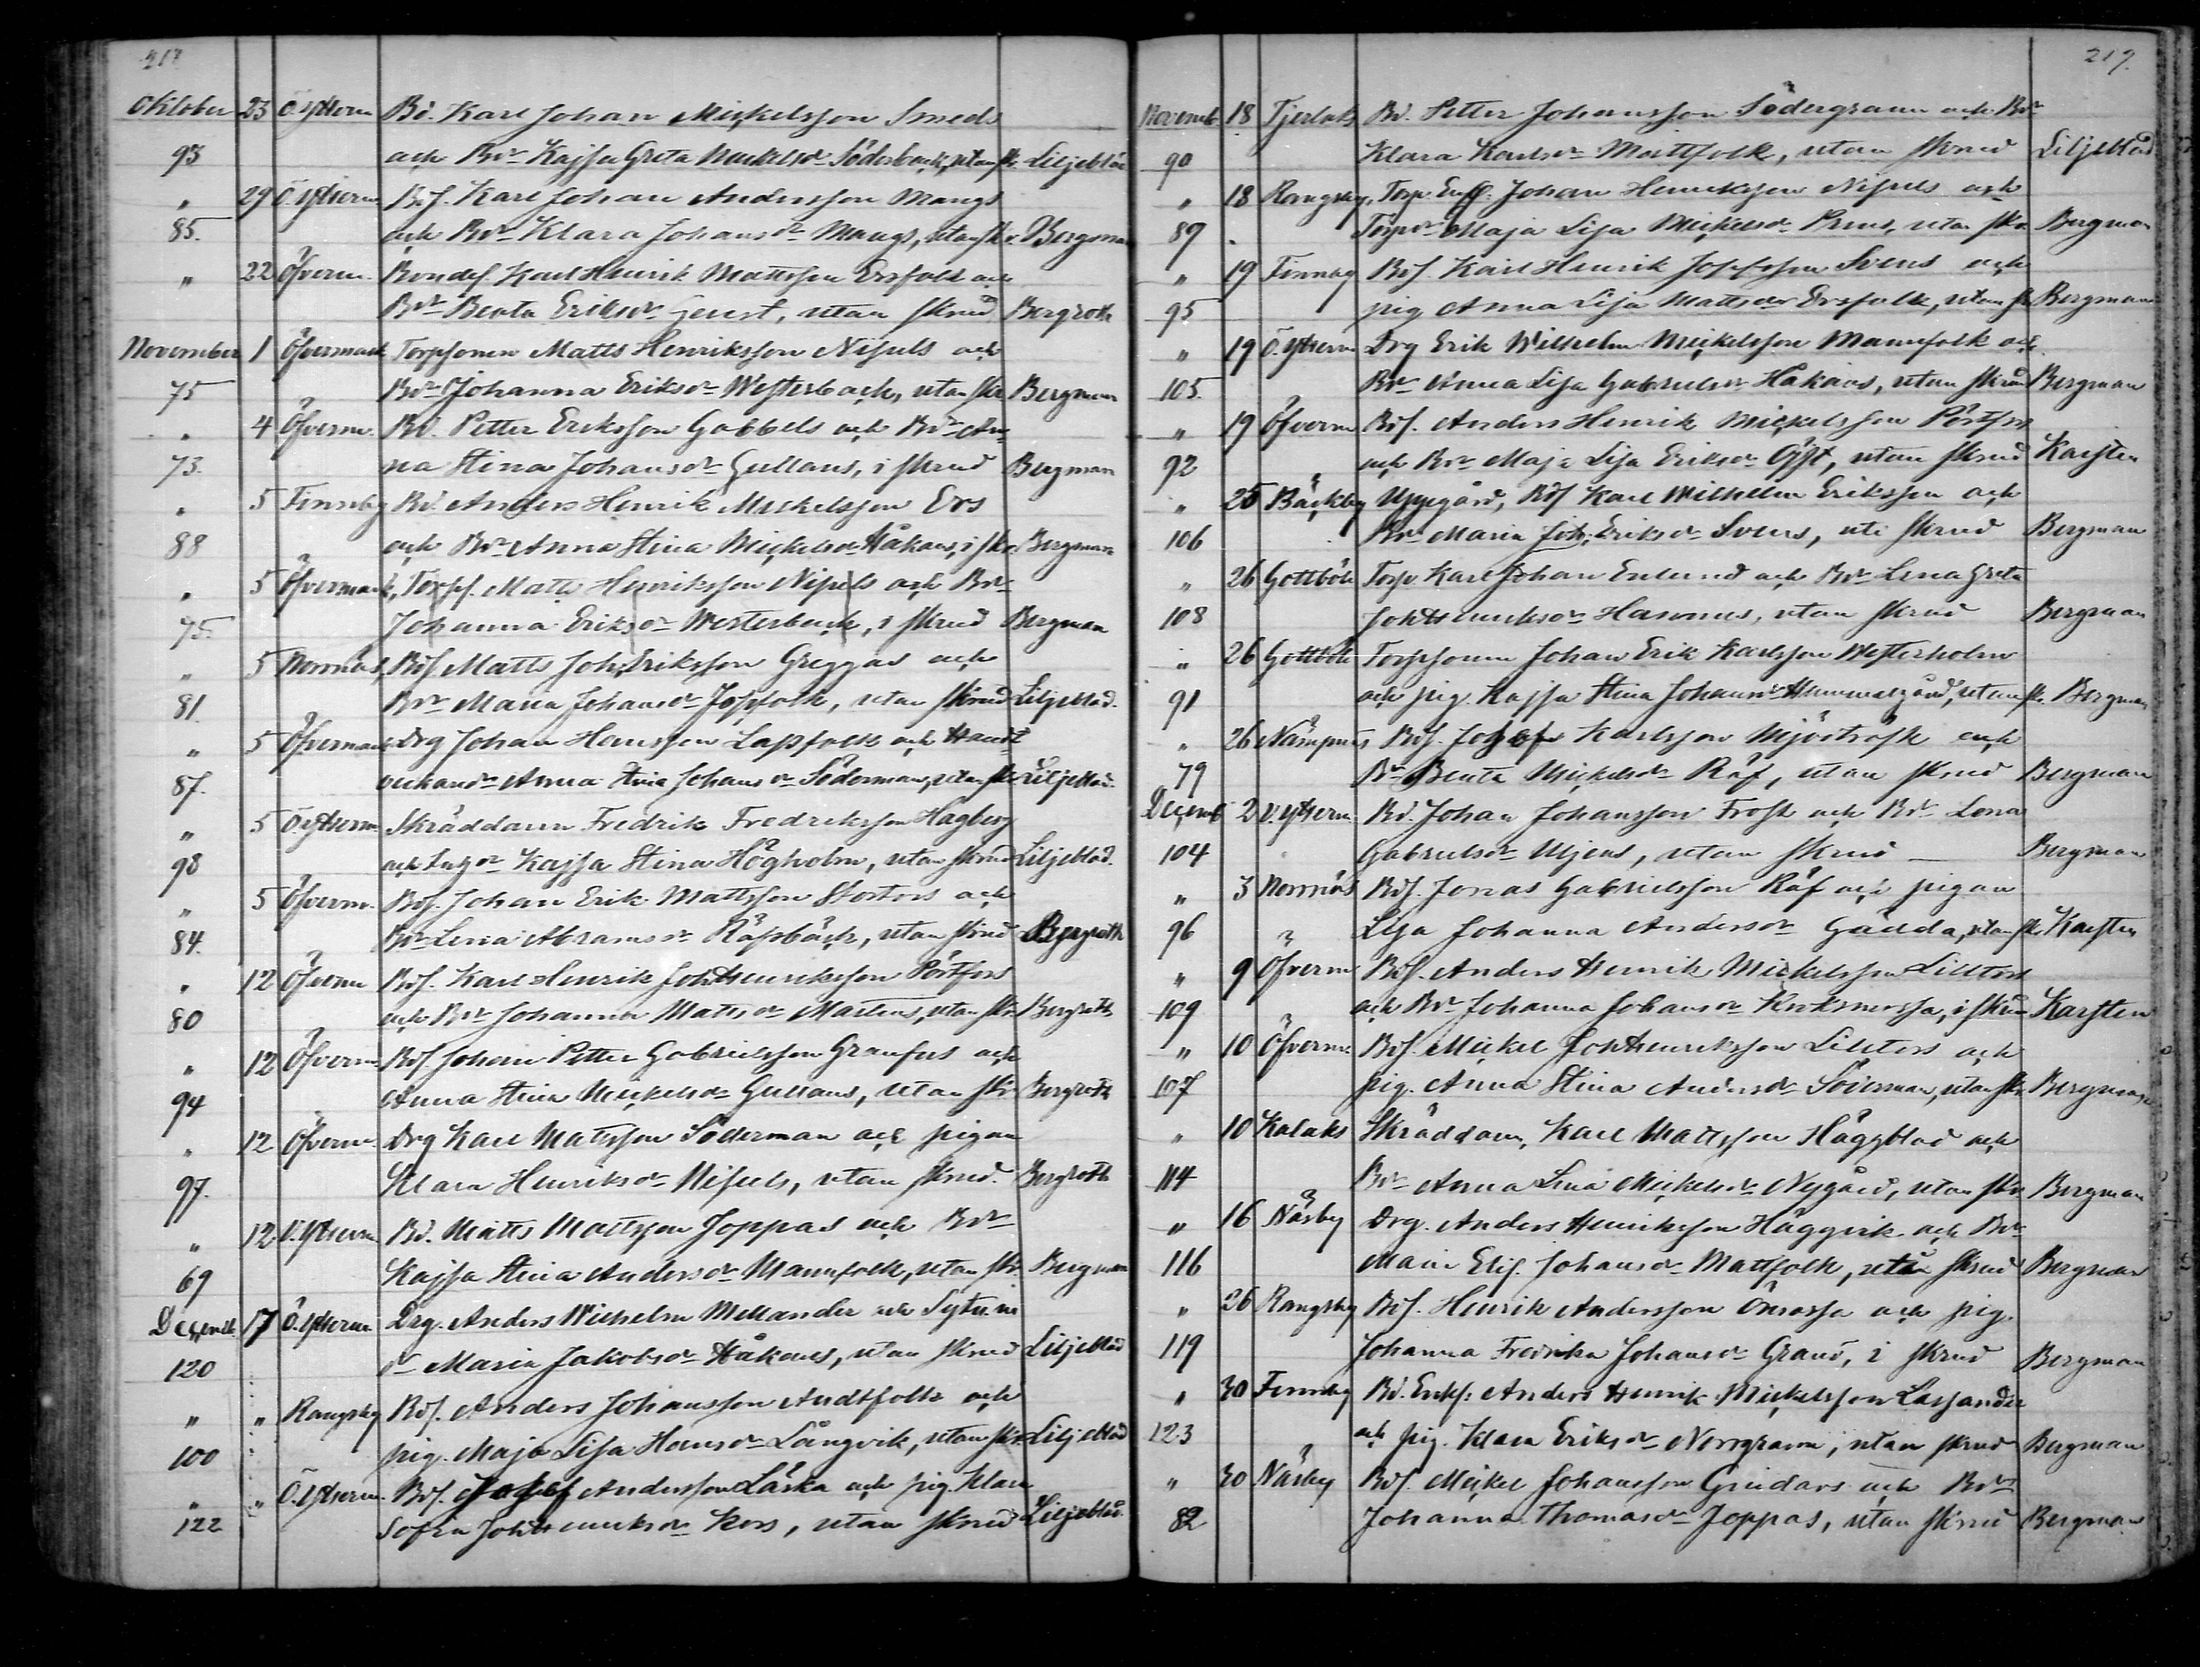 218
Oktober 23 Ö. Ytterm Bd. Karl Johan Mickelsson Smeds
93 och Bdr Kajsa Greta Mickelsdr Söderback, utan skr. Liljeblad
" 29 Ö. Ytterm Bdf. Karl Johan Andersson Mangs
85. och Bdr Klara Johansdr Mangs, utan skr. Bergman
" 22 Öfverm. Bondes. Karl Henrik Mattsson Ersfolk och
Bdr Beata Eriksdr Geust, utan skrud Bergroth
November 1 Öfvermark Torpsonen Matts Henriksson Nissels och
75 Bdr Johanna Eriksdr Westerback, utan skr Bergman
" 4 Öfverm. Bd. Petter Eriksson Gabbels och Bdr An-
73. na Stina Johansdr Gullans, i skrud Bergman
" 5 Finnby Bd. Anders Henrik Mickelsson Ers
88 och Bdr Anna Stina Mickelsdr Håkans, i skr. Bergman
" 5 Öfvermark, Torps. Matts Henriksson Nissels och Bdr
75. Johanna Eriksdr Westerback, i skrud Bergman
" 5 Norrnäs, Bds Matts Joh. Eriksson Greggas och
81. Bdr Maria Johansdr Jossfolk, utan skrud Liljeblad.
" 5 Öfvermark Drg Johan Hansson Lassfolk och Handt-
87. verkandr Anna Stina Johansdr Söderman, utan skr. Liljeblad.
" 5 Ö. Ytterm. Skräddaren Fredrik Fredriksson Hagberg
98 och Kajsa Stina Högholm, utan skrud Liljeblad.
" 5 Öfverm. Bds. Johan Erik Mattsson Stortors och
84. Bdr Lena Abramsdr Råssback, utan skrud Bergroth
" 12 Öfverm Bds. Karl Henrik Joh. Henriksson Pörtfors
80 och Bdr Johanna Mattsdr Martens, utan skr. Bergroth
" 12 Öfverm Bds. Johan Petter Gabrielsson Granfors och
94 Anna Stina Mickelsdr Gullans, utan skr. Bergroth
" 12 Öfverm Drg Karl Mattsson Söderman och pigan
97. Klara Henriksdr Nissels, utan skrud. Bergroth
" 12 V. Ytterm Bd. Matts Mattsson Joppas och Bdr
69 Kajsa Stina Andersdr Mannfolk, utan skr. Bergman
Decemb 17 Ö. Ytterm. Drg. Anders Wilhelm Mellander och
120 dr Maria Jakobsdr Håkans, utan skrud Liljeblad
" " Rangsby Bds. Anders Johansson Andtfolk och
100 pig. Maja Lisa Hansdr Långvik, utan skr. Liljeblad
" " Ö. Ytterm. Bds. Josef Andersson Låska och pig. Klara
122 Sofia Joh. Henriksdr Kors, utan skrud Liljeblad.
219.
Novemb 18 Tjerlaks Bd. Petter Johansson Södergrann och Bdr
90 Klara Karlsdr Mattfolk, utan skrud Liljeblad
" 18 Rangsby, Torp. Enkl. Johan Henriksson Nissels och
89 Torpdr Maja Lisa Mickelsdr Prens, utan skr. Bergman
" 19 Finnby Bds. Karl Henrik Josefsson Svens och
95 pig Anna Lisa Mattsdr Ersfolk, utan sk Bergman
" 19 Ö. Ytterm Drg Erik Wilhelm Mickelsson Mannfolk och
105. Bdr Anna Lisa Gabrielsdr Håkans, utan skrud Bergman
" 19 Öfverm Bds. Anders Henrik Mickelsson Pörtfors
92 och Bdr Maja Lisa Eriksdr Öjst, utan skrud Karsten
" 25 Bäckby Uppegård, Bds Karl Wilhelm Eriksson och
106 Bdr Maria Joh. Eriksdr Svens, uti skrud Bergman
" 26 Gottböle Torp. Karl Johan Enlund och Bdr Lena Greta
108 Joh Henriksdr Hasonus, utan skrud Bergman
" 26 Gottböle Torpsonen Johan Erik Karlsson Westerholm
91 och pig. Kajsa Stina Johansdr Hummelgård, utan sk. Bergman
" 26 Nämpnäs Bds. Josef Karlsson Mjösträsk och
79 Bdr Beata Mickelsdr Räf, utan skrud Bergman
Decemb 2 V. Ytterm. Bd. Johan Johansson Frosk och Bdr Lena
104 Gabrielsdr Mjens, utan skrud — Bergman
" 3 Norrnäs Bds. Jonas Gabrielsson Räf och pigan
96 Lisa Johanna Andersdr Gädda, utan sk. Karsten
" 9 Öfverm Bds. Anders Henrik Mickelsson Lilltors
109 och Bdr Johanna Johansdr, i skrud Karsten
" 10 Öfverm Bds. Mickel Joh Henriksson Lilltors och
107 pig. Anna Stina Andersdr Söderman, utan skr Bergman
" 10 Kalaks Skräddaren Karl Mattsson Häggblad och
114 Bdr Anna Lena Mickelsdr Nygård, utan skr Bergman
" 16 Näsby Drg. Anders Henriksson Häggvik och Bdr
116 Maria Elis. Johansdr Mattfolk, utan skrud Bergman
" 26 Rangsby Bds. Henrik Andersson Önsossa och pig.
119 Johanna Fredrika Johansdr Grand, i skrud Bergman
" 30 Finnby Bd. Enkl: Anders Henrik Mickelsson Lassander
123 och pig. Klara Eriksdr Norrgrann, utan skrud Bergman
" 30 Näsby Bds. Mickel Johansson Grindars och Bdr
82 Johanna Thomasdr Joppas, utan skrud Bergman